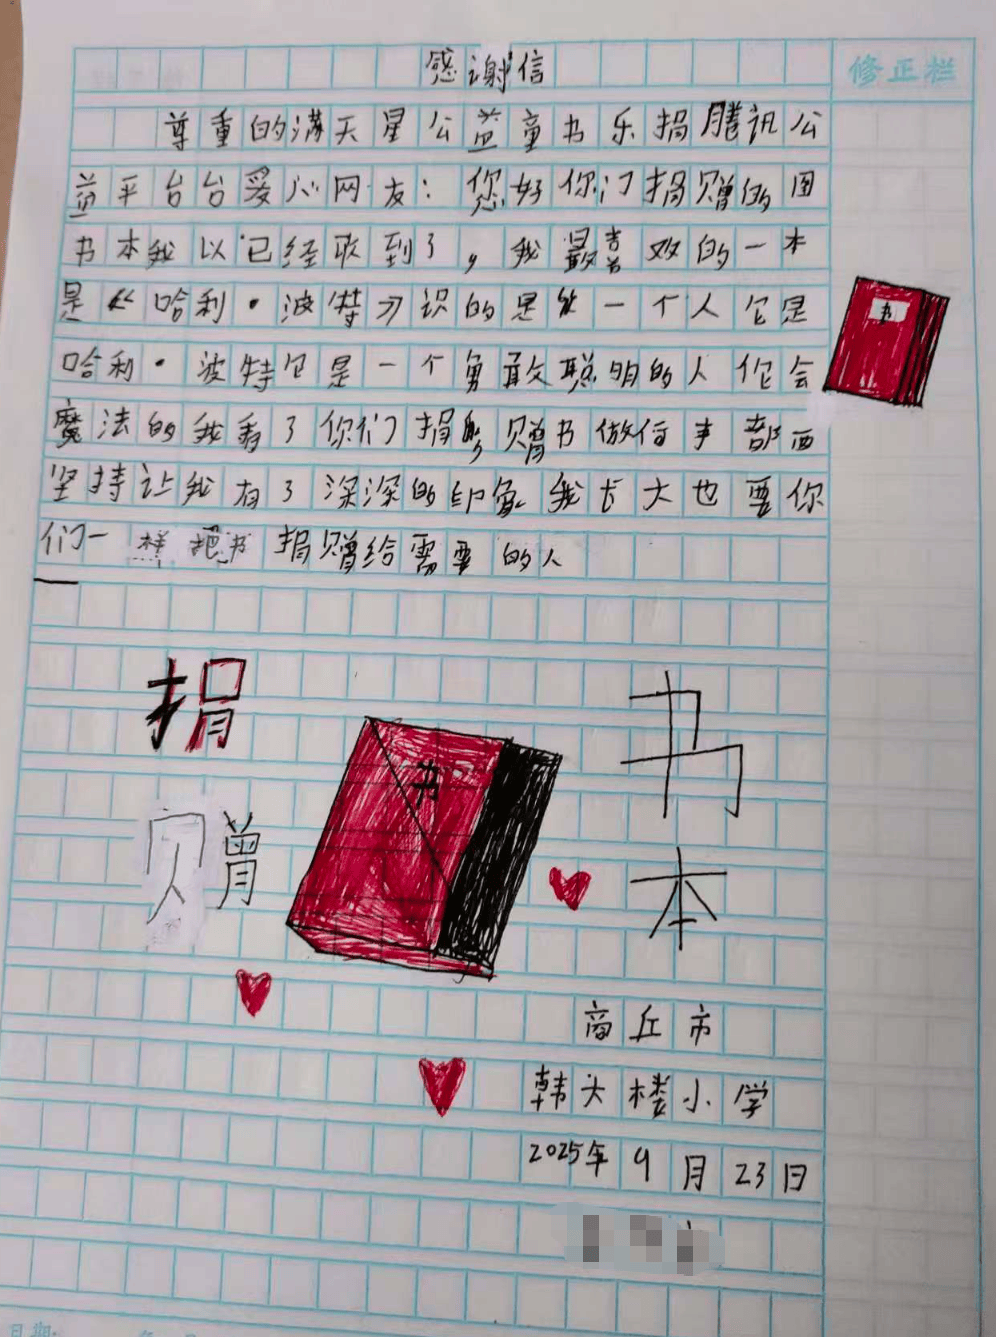 感谢信
修正栏
尊重的满天星公益童书乐捐腾讯公
益平台台爱心网友：您好你们捐赠的图
书本我以已经收到了，我最喜欢的一本
是《哈利·波特》识的是一个人它是
哈利·波特它是一个勇敢聪明的人他会
魔法的我看了你们捐赠书做信事都而
坚持让我有了深深的印象我长大也要你
们一样把书捐赠给需要的人
书
捐赠
书
书本
商丘市
韩大楼小学
2025年9月23日
日期: